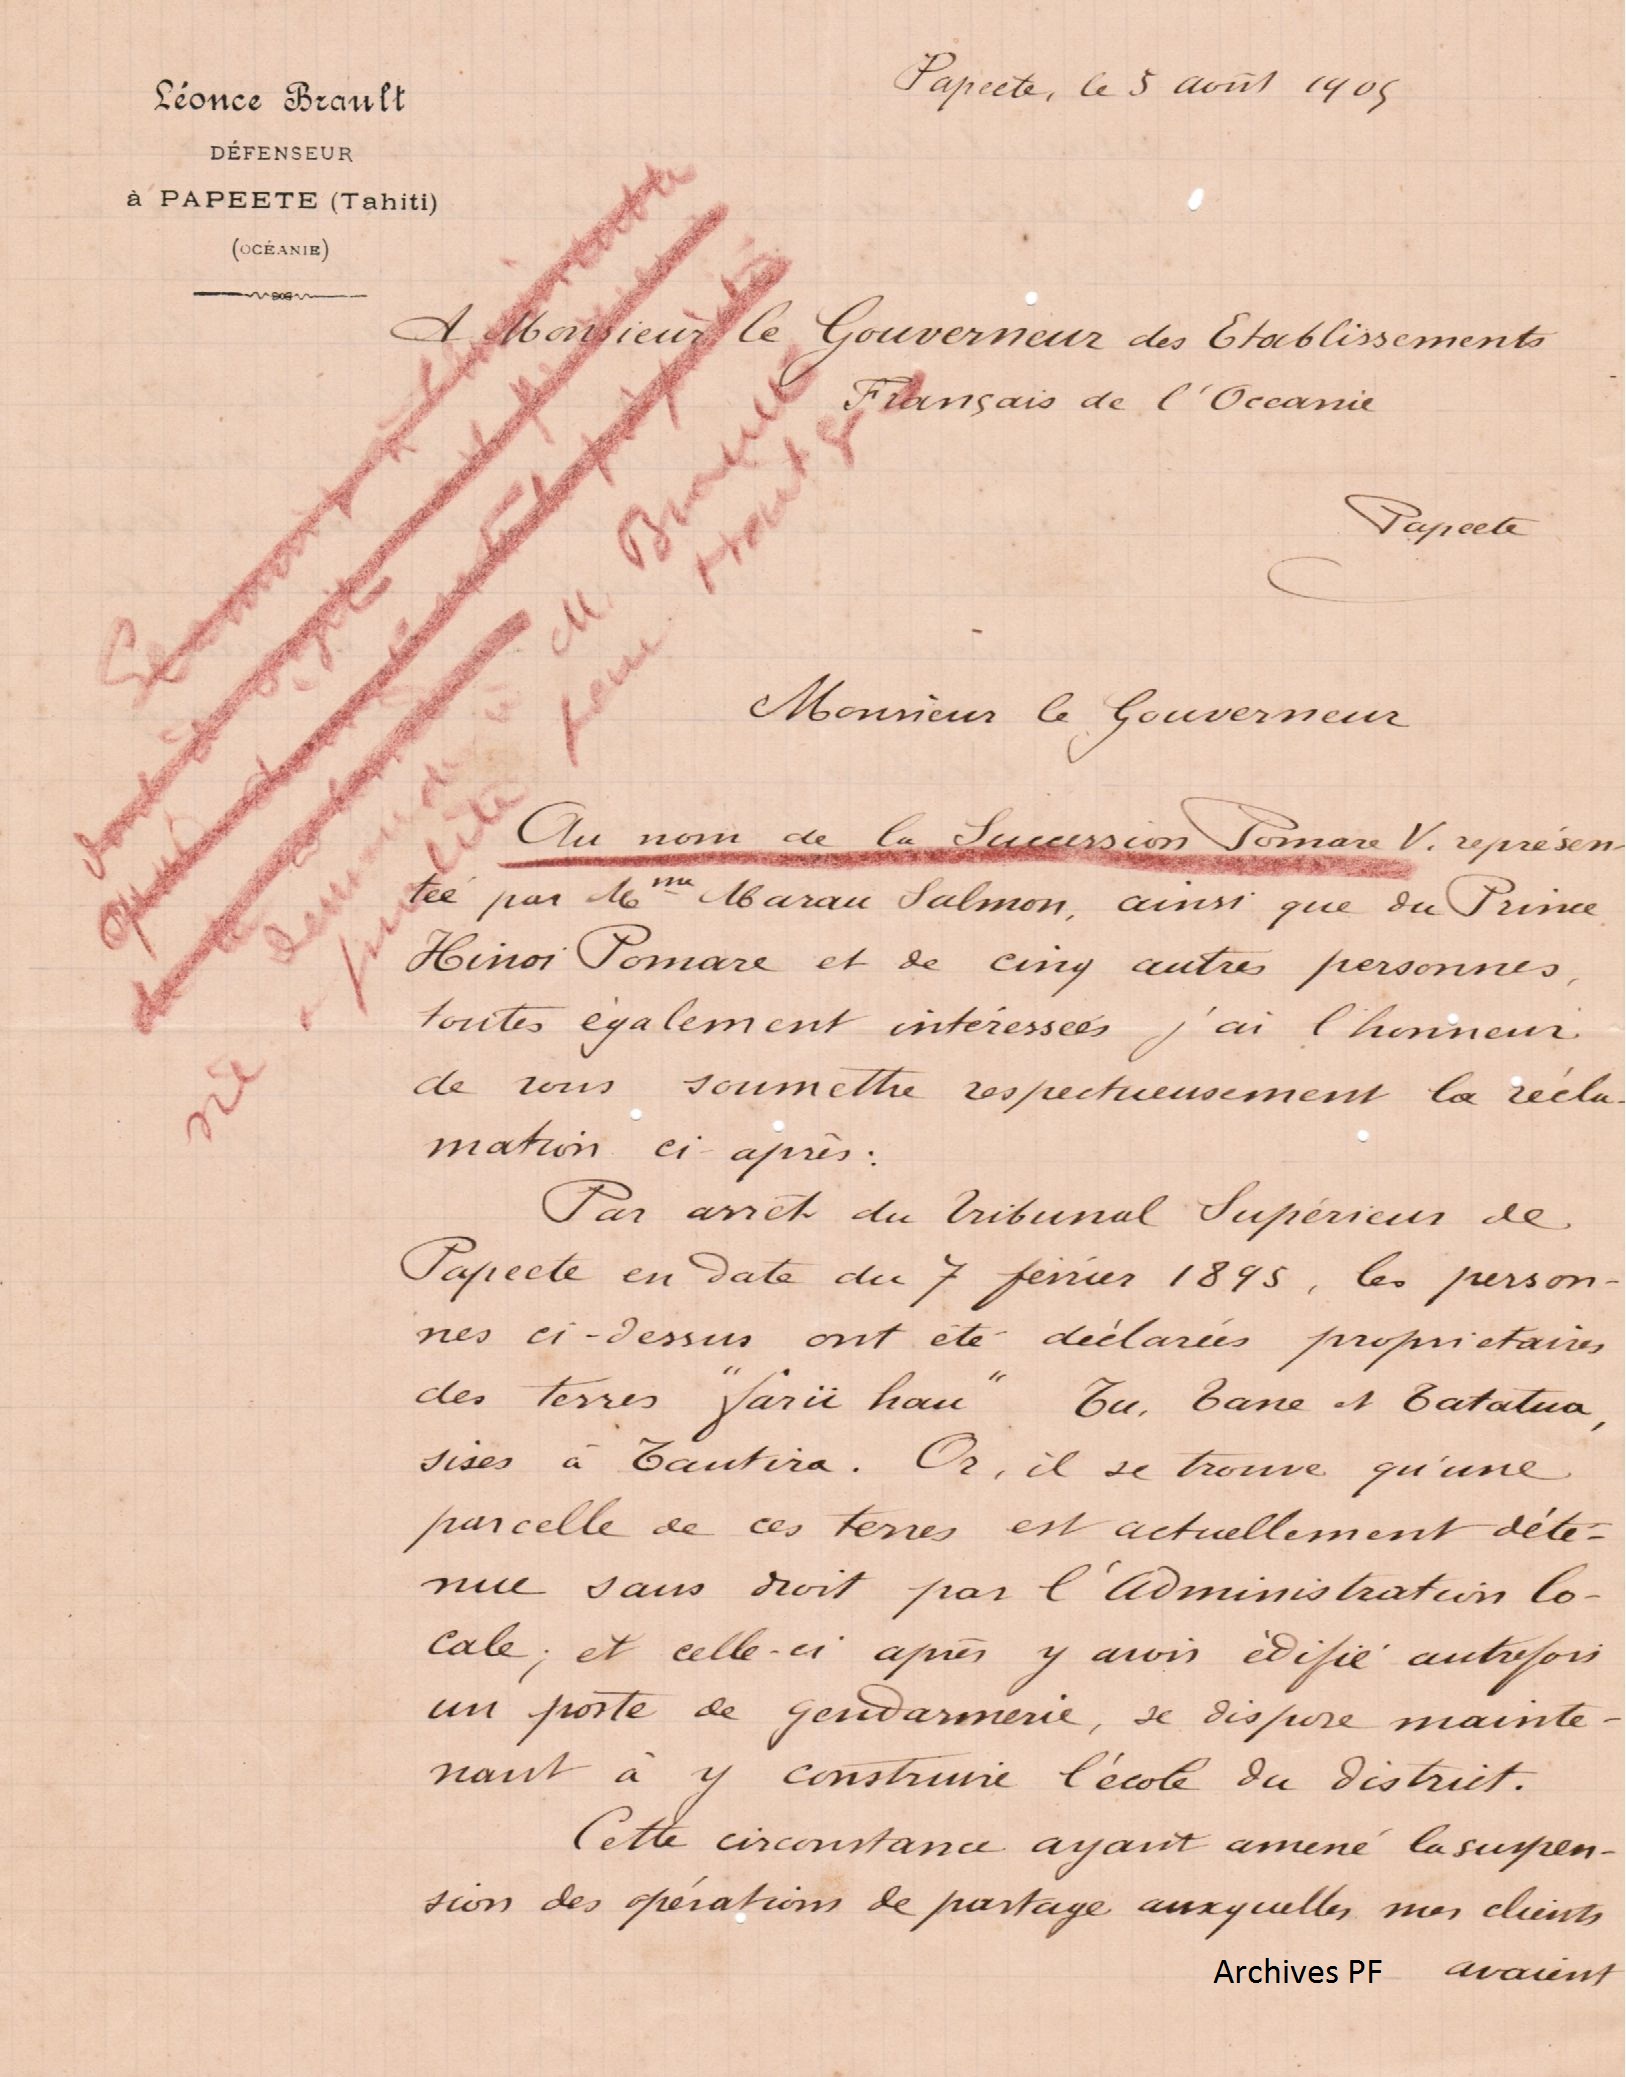 Léonce Brault
DÉFENSEUR
à PAPEETE (Tahiti)
(OCÉANIE)
Papeete, le 5 août 1905
A Monsieur le Gouverneur des Etablissements
Français de l'Oceanie
Papeete
Monsieur le Gouverneur
Au nom de la Succession Pomare V. représen-
tée par Mme Marau Salmon, ainsi que du Prince
Hinoi Pomare et de cinq autres personnes,
toutes également intéressées j'ai l'honneur
de vous soumettre respectueusement la récla-
mation ci-après:
Par arrêt du Tribunal Supérieur de
Papeete en date du 7 février 1895, les person-
nes ci-dessus ont été déclarées propriétaires
des terres "farii hau" Tu, Tane et Tatatua,
sises à Tautira. Or, il se trouve qu'une
parcelle de ces terres est actuellement déte-
nue sans droit par l'Administration lo-
cale; et celle-ci après y avoir édifié autrefois
un poste de gendarmerie, se dispose mainte-
nant à y construire l'école du district.
Cette circonstance ayant amené la suspen-
sion des opérations de partage auxquelles mes clients
avaient
Archives PF
dont il s'agit
demandé à M. Brault
pour